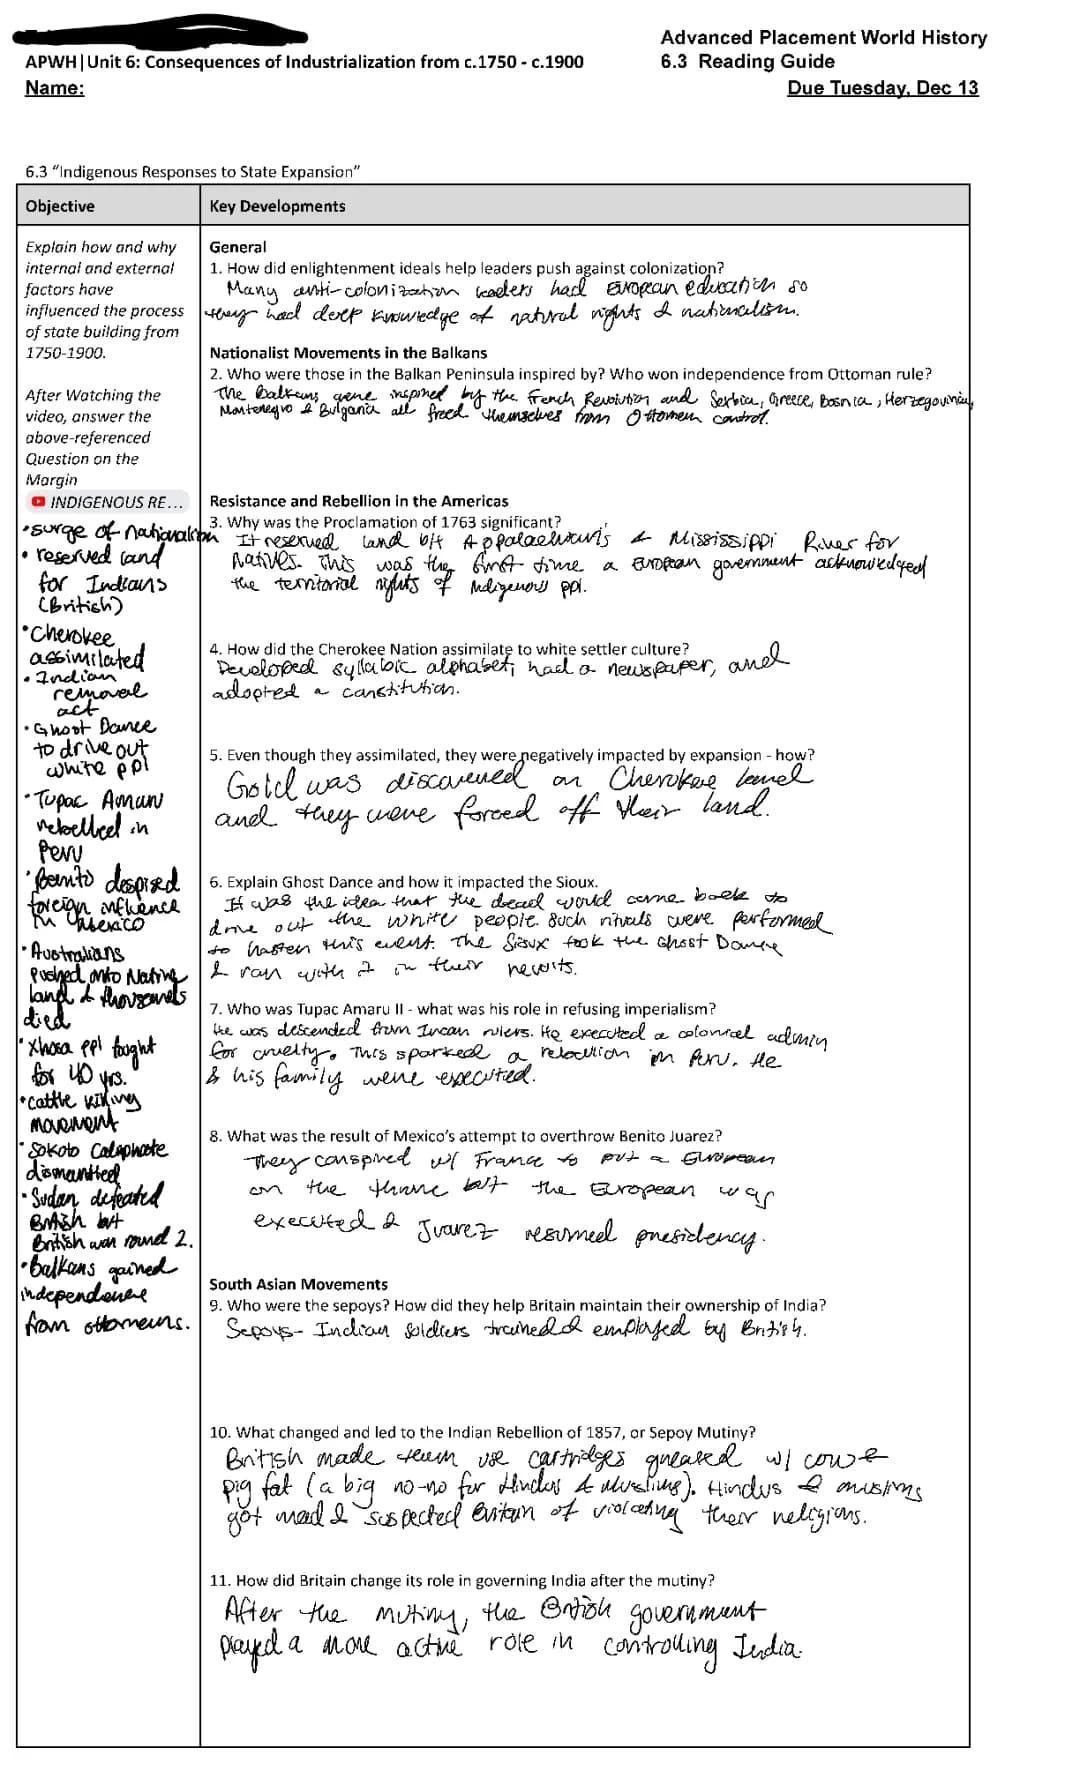 Advanced Placement World History
APWH|Unit 6: Consequences of Industrialization from c.1750 - c.1900
6.3 Reading Guide
Name:
Due Tuesday, Dec 13
6.3 "Indigenous Responses to State Expansion"
Objective
Key Developments
Explain how and why
internal and external
factors have
influenced the process
of state building from
1750-1900.
After Watching the
video, answer the
above-referenced
Question on the
Margin
INDIGENOUS RE...
• surge of nationalism
• reserved land
for Indians
(British)
• Cherokee
assimilated
• Indian
removal
act
• Ghost Dance
to drive out
white ppl
• Tupac Amaru
rebelled in
Peru
• Benito despised
foreign influence
in Mexico
• Australians
pushed onto Native
land & thousands
died
• Xhosa ppl fought
for 40 yrs.
• cattle killing
movement
• Sokoto Caliphate
dismantled
• Sudan defeated
British but
British won round 2.
• Balkans gained
independence
from ottomans.
General
1. How did enlightenment ideals help leaders push against colonization?
Many anti-colonization leaders had European education so
they had deep knowledge of natural rights & nationalism.
Nationalist Movements in the Balkans
2. Who were those in the Balkan Peninsula inspired by? Who won independence from Ottoman rule?
The Balkans were inspired by the French Revolution and Serbia, Greece, Bosnia, Herzegovinia,
Montenegro & Bulgaria all freed themselves from Ottoman control.
Resistance and Rebellion in the Americas
3. Why was the Proclamation of 1763 significant?
It reserved land b/t Appalachians & Mississippi River for
Natives. This was the first time a European government acknowledged
the territorial rights of indigenous ppl.
4. How did the Cherokee Nation assimilate to white settler culture?
Developed syllabic alphabet, had a newspaper, and
adopted a constitution.
5. Even though they assimilated, they were negatively impacted by expansion - how?
Gold was discovered on Cherokee land
and they were forced off their land.
6. Explain Ghost Dance and how it impacted the Sioux.
It was the idea that the dead would come back to
drive out the white people. Such rituals were performed
to hasten this event. The Sioux took the Ghost Dance
& ran with it in their revolts.
7. Who was Tupac Amaru II - what was his role in refusing imperialism?
He was descended from Incan rulers. He executed a colonial admin
for cruelty. This sparked a rebellion in Peru. He
& his family were executed.
8. What was the result of Mexico's attempt to overthrow Benito Juarez?
They conspired w/ France to put a European
on the throne but the European was
executed & Juarez resumed presidency.
South Asian Movements
9. Who were the sepoys? How did they help Britain maintain their ownership of India?
Sepoys- Indian soldiers trained & employed by British.
10. What changed and led to the Indian Rebellion of 1857, or Sepoy Mutiny?
British made them use cartridges greased w/ cow &
pig fat (a big no-no for Hindus & Muslims). Hindus & muslims
got mad & suspected Britain of violating their religions.
11. How did Britain change its role in governing India after the mutiny?
After the mutiny, the British government
played a more active role in controlling India.